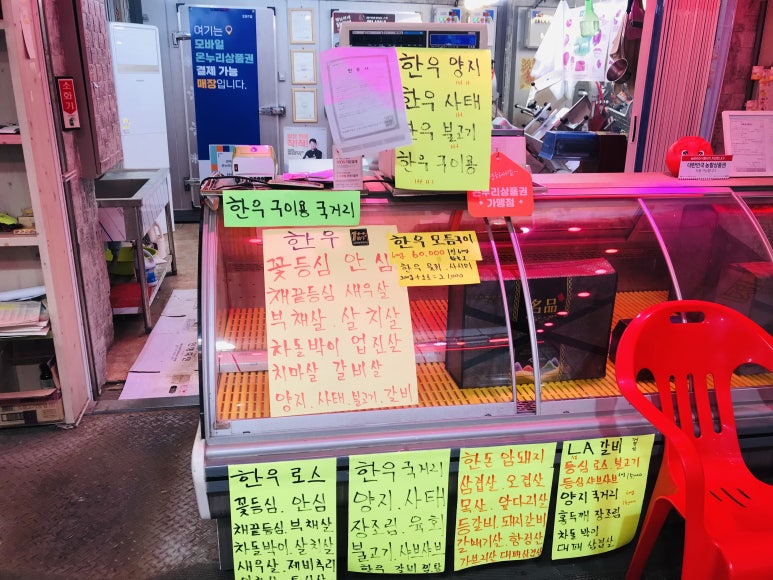 여기는
모바일
온누리상품권
결제 가능
매장입니다.
소화기
한우 양지
한우 사태
한우 불고기
한우 구이용
온누리상품권
가맹점
대한민국 농할상품권
한우 구이용 국거리
한우
꽃등심 안심
채끝등심 새우살
부채살. 살치살
차돌박이 업진살
치마살 갈비살
양지. 사태. 불고기. 갈비
한우 모듬구이
60,000
한우 육회. 사시미
名品
한우 로스
꽃등심. 안심
채끝등심. 부채살
차돌박이. 살치살
새우살. 제비추리
한우 국거리
양지. 사태
장조림. 육회
불고기. 샤브샤브
한우 갈비
한돈 암돼지
삼겹살 오겹살
목살. 앞다리살
등갈비. 돼지갈비
갈매기살. 항정살
가브리살 대패삼겹살
LA 갈비
등심 로스. 불고기
등심샤브샤브
양지 국거리
홍두깨 장조림
차돌박이
대패 삼겹살